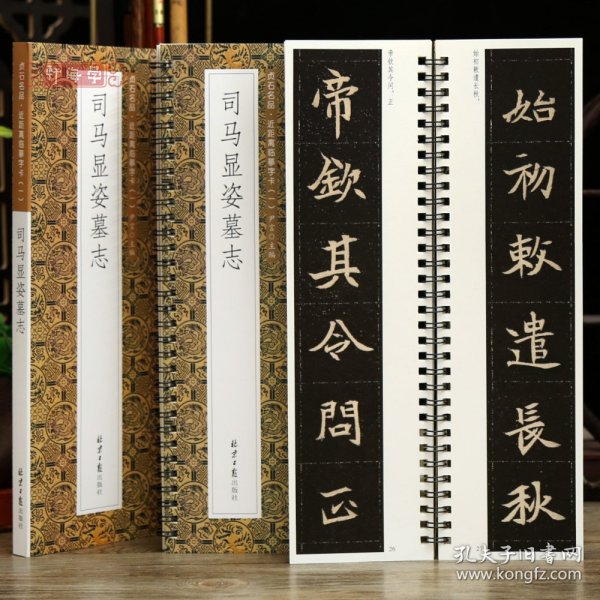 贞石名品·近距离临摹字卡(一)
司马显姿墓志
司马显姿墓志
北京日报出版社
贞石名品·近距离临摹字卡(一) 尹言 主编
司马显姿墓志
北京日报出版社
帝钦其令问。正
帝欽其令問正
26
始初敕遣长秋,
始初敕遣長秋
孔夫子旧书网
www.kongfz.com